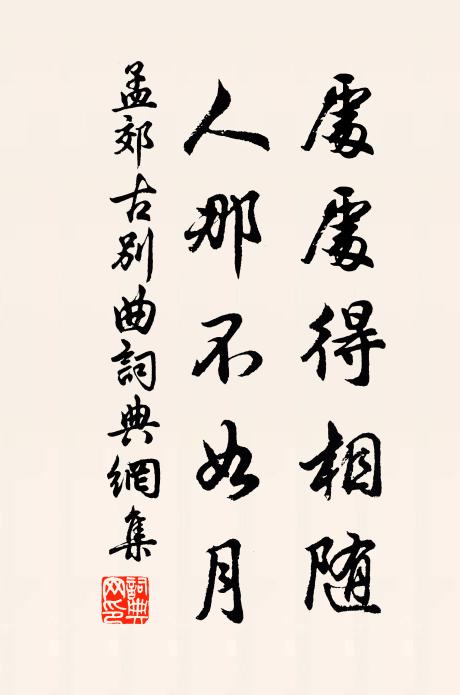 處處得相隨
人那不如月
孟郊古别曲詞典網集
詞典
网印